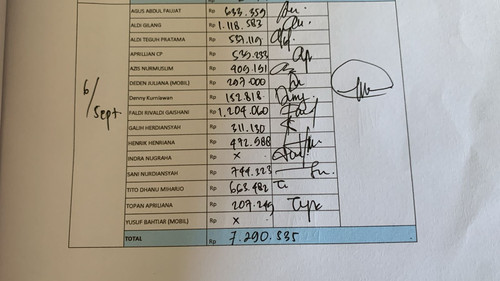 AGUS ABDUL FAUJAT Rp 633.359
ALDI GILANG Rp 1.118.583
ALDI TEGUH PRATAMA Rp 537.119
APRILLIAN CP Rp 539.233
AZIS NURMUSLIM Rp 409.151
DEDEN JULIANA (MOBIL) Rp 207.000
6/ Sept. Denny Kurniawan Rp 152.818
FALDI RIVALDI GAISHANI Rp 1.204.060
GALIH HERDIANSYAH Rp 311.130
HENRIK HENRIANA Rp 492.588
INDRA NUGRAHA Rp x
SANI NURDIANSYAH Rp 744.323
TITO DHANU MIHARJO Rp 663.482
TOPAN APRILIANA Rp 207.249
YUSUF BAHTIAR (MOBIL) Rp x
TOTAL Rp 7.290.535